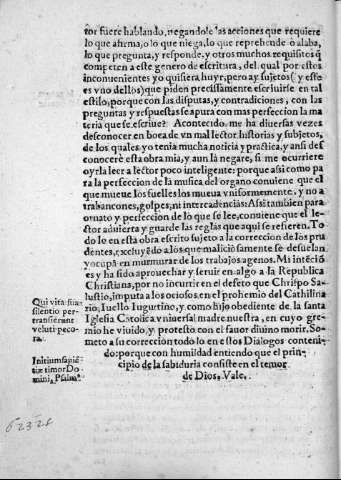 tor fuere hablando, negandole las acciones que requiere
lo que afirma, o lo que niega, lo que reprehende o alaba,
lo que pregunta, y responde, y otros muchos requisitos q̃
competen a este genero de escritura, del qual por estos
inconuenientes yo quisiera huyr, pero ay sujetos (y este
es vno dellos) que piden precissamente escriuirse en tal
estilo, porque con las disputas, y contradiciones, con las
preguntas y respuestas se apura con mas perfeccion la ma
teria que se escriue. Acontecido me ha diuersas vezes
desconocer en boca de vn mal lector historias y subjetos,
de los quales yo tenia mucha noticia y practica, y ansi des
conocerè esta obra mia, y aun la negare, si me ocurriere
oyrla leer a lector poco inteligente: porque asi como pa
ra la perfeccion de la musica del organo conuiene que el
que mueue los fuelles los mueua vniformemente, y no a
trabancones, golpes, ni intercadencias: Assi tambien para
ornato y perfeccion de lo que se lee, conuiene que el le-
ctor aduierta y guarde las reglas que aqui se refieren. To
do lo en esta obra escrito sujeto a la correccion de los pru
dentes, excluyẽdo a los que maliciosamente se desuelan
y ocupã en murmurar de los trabajos agenos. Mi intẽciõ
es y ha sido aprouechar y seruir en algo a la Republica
Christiana, por no incurrir en el defeto que Chrispo Sa-
lustio, imputa a los ociosos en el prohemio del Cathilina
rio, Iuello Iugurtino, y como hijo obediente de la santa
Iglesia Catolica vniuersal madre nuestra, en cuyo gre-
mio he viuido, y protesto con el fauor diuino morir. So-
meto a su correccion todo lo en estos Dialogos conteni-
do: porque con humildad entiendo que el prin-
cipio de la sabiduria consiste en el temor
de Dios. Vale.
Qui vitã sub
silentio per-
transierunt
veluti peco-
ra.
Initium sapiẽ
tiæ timor Do
mini, Psalm.
62328